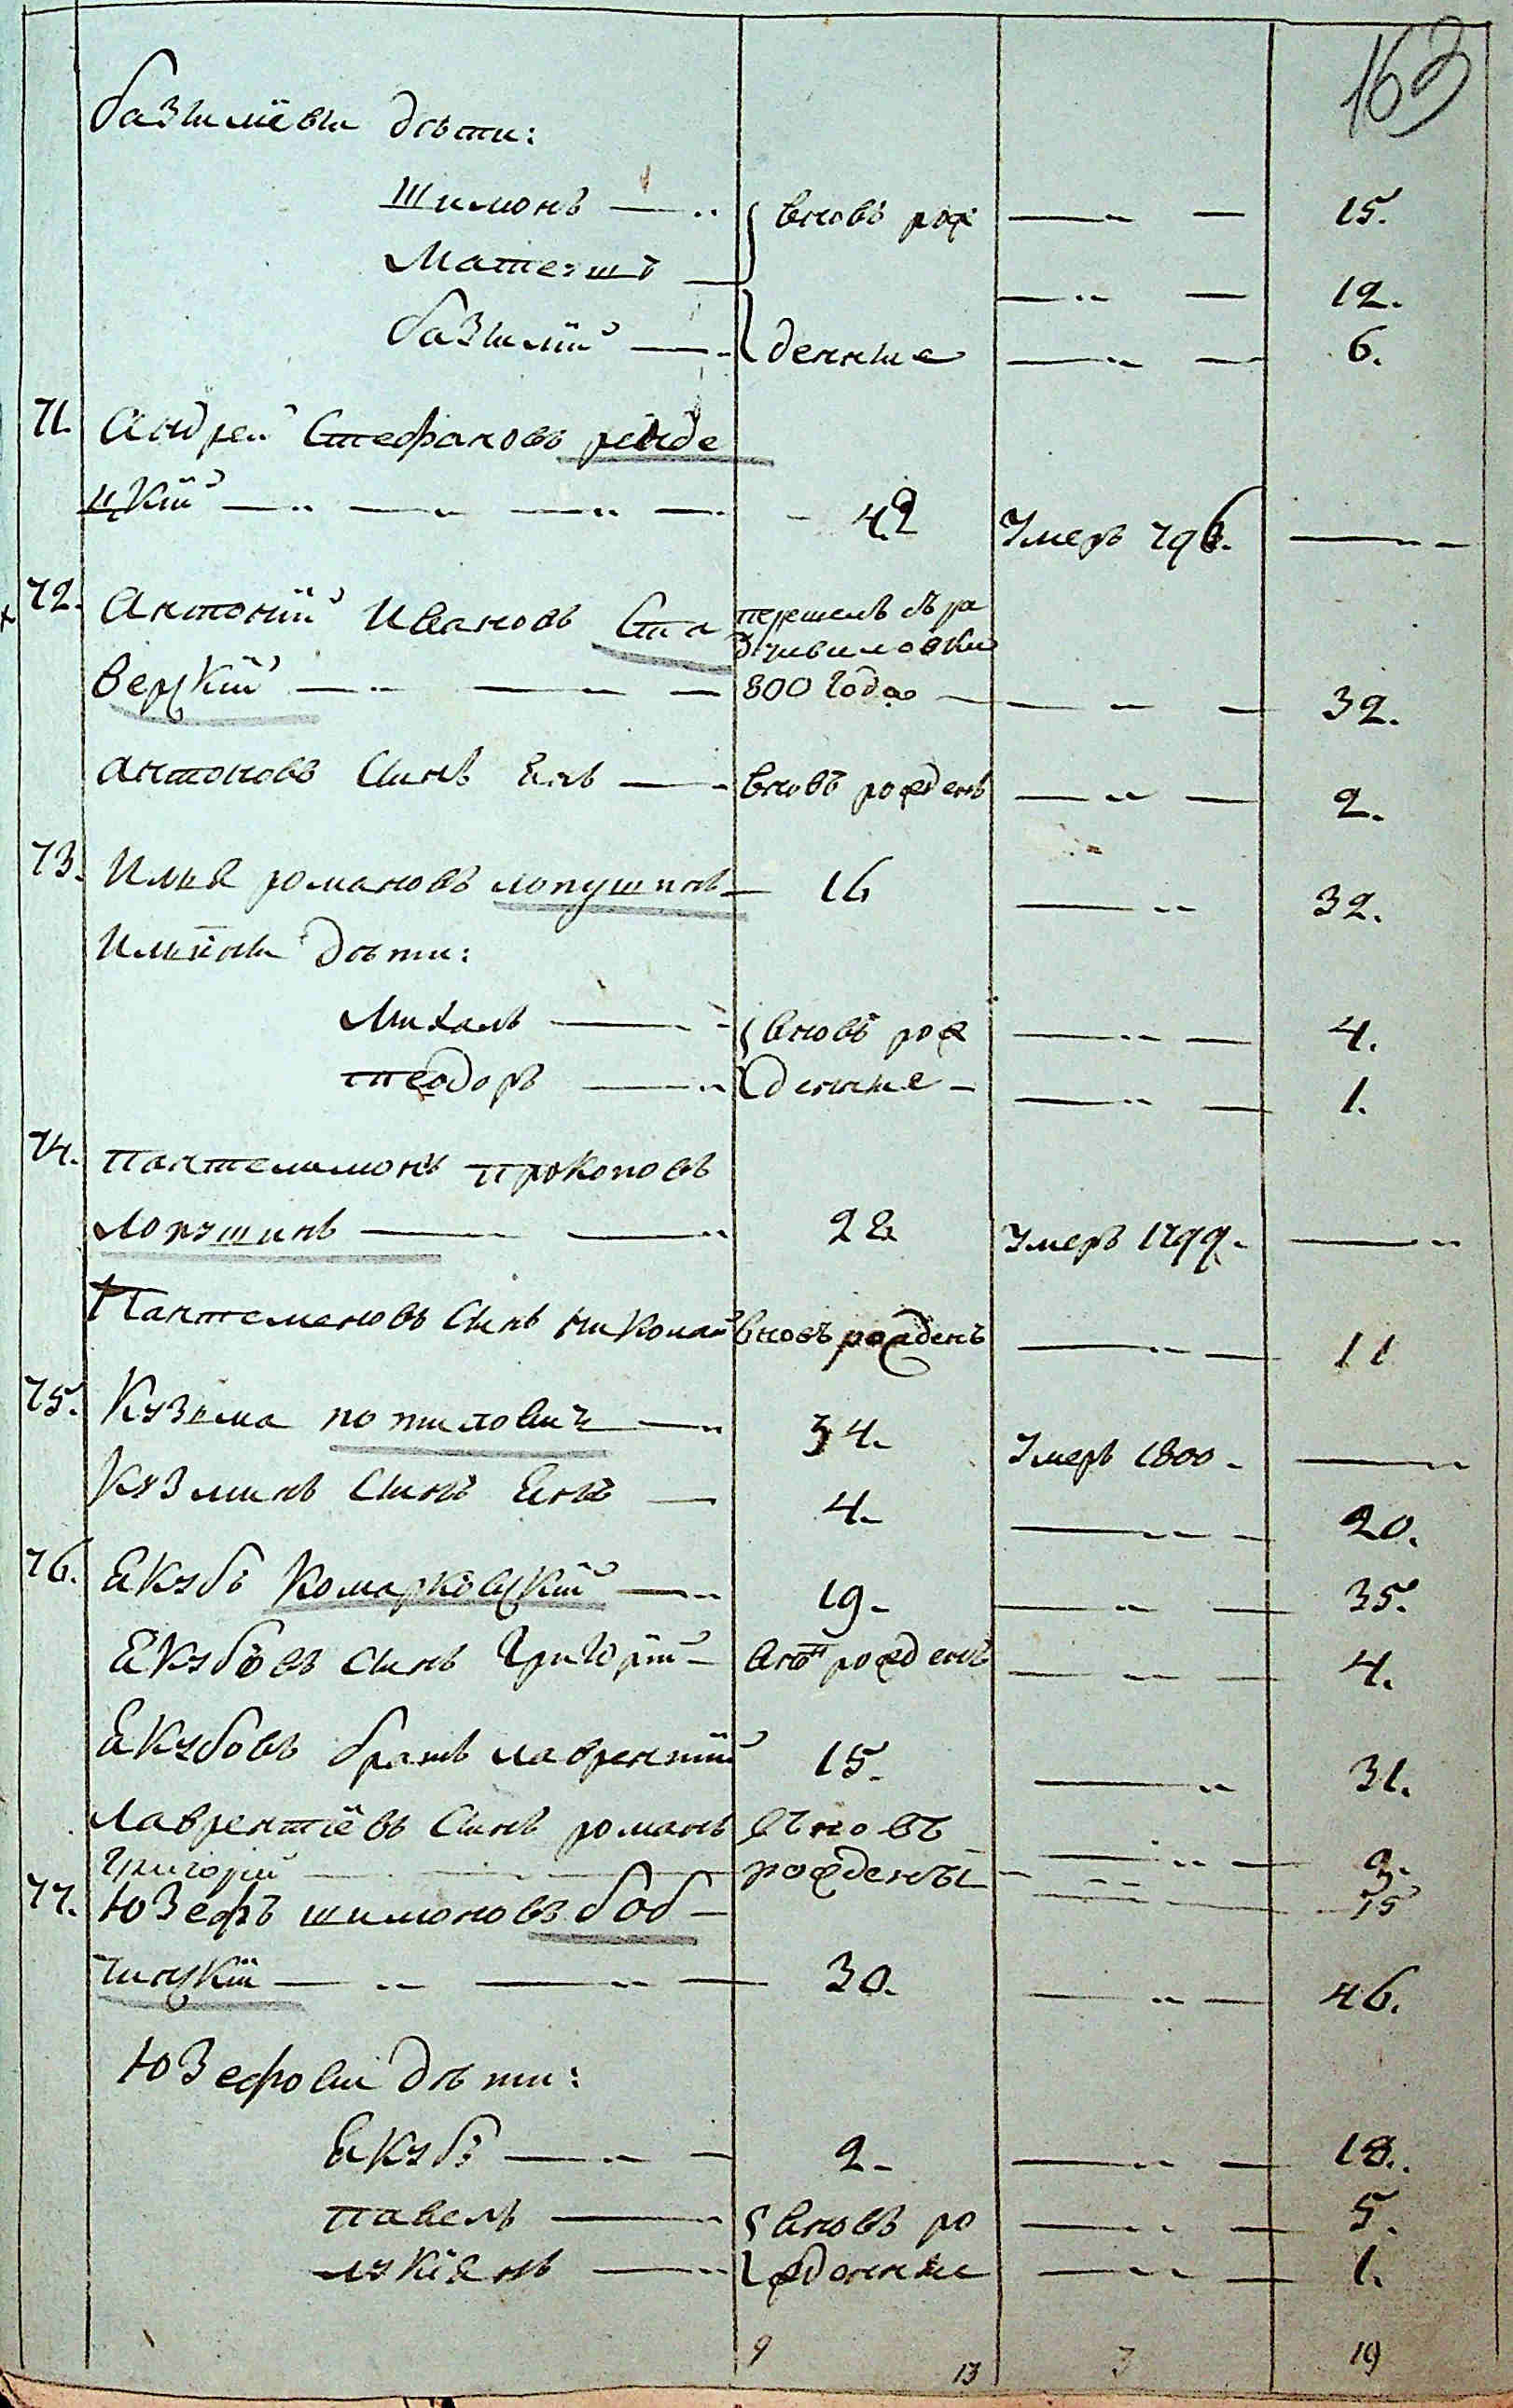 163
Базилиевы дѣти:
Шимонъ — вновь рож — 15.
Матеушъ — 12.
Базилий — денные — 6.
71. Андрей Стефановъ
цкий — 42 Умеръ 796. —
72. Антоний Ивановъ Ста перешелъ съ ра
верский — 800 года — 32.
Антоновъ сынъ Янъ — вновь рожденъ — 2.
73. Илья романовъ лопушинъ — 16 — 32.
Ильины дѣти:
Михалъ — вновь рож — 4.
теодоръ — денные — 1.
74. пантелимонъ прокоповъ
лопушинъ — 28 Умеръ 1799. —
Пантеленовъ сынъ николай вновь рожденъ — 11
75. Кузьма потилович — 34. Умеръ 1800. —
Кузминъ сынъ Янъ — 4. — 20.
76. Якубъ Комарковский — 19. — 35.
Якубовъ сынъ Григорий — внов рожденъ — 4.
Якубовъ братъ лаврентий 15. — 31.
Лаврентиевъ сынъ романъ вновь — 9.
Григорий — рожденъ — 15
77. Юзефъ шимоновъ боб —
чинский — 30. — 46.
Юзефовы дѣти:
Якубъ — 2. — 18.
павелъ — вновь ро — 5.
лукиянъ — жденные — 1.
9 13 3 19